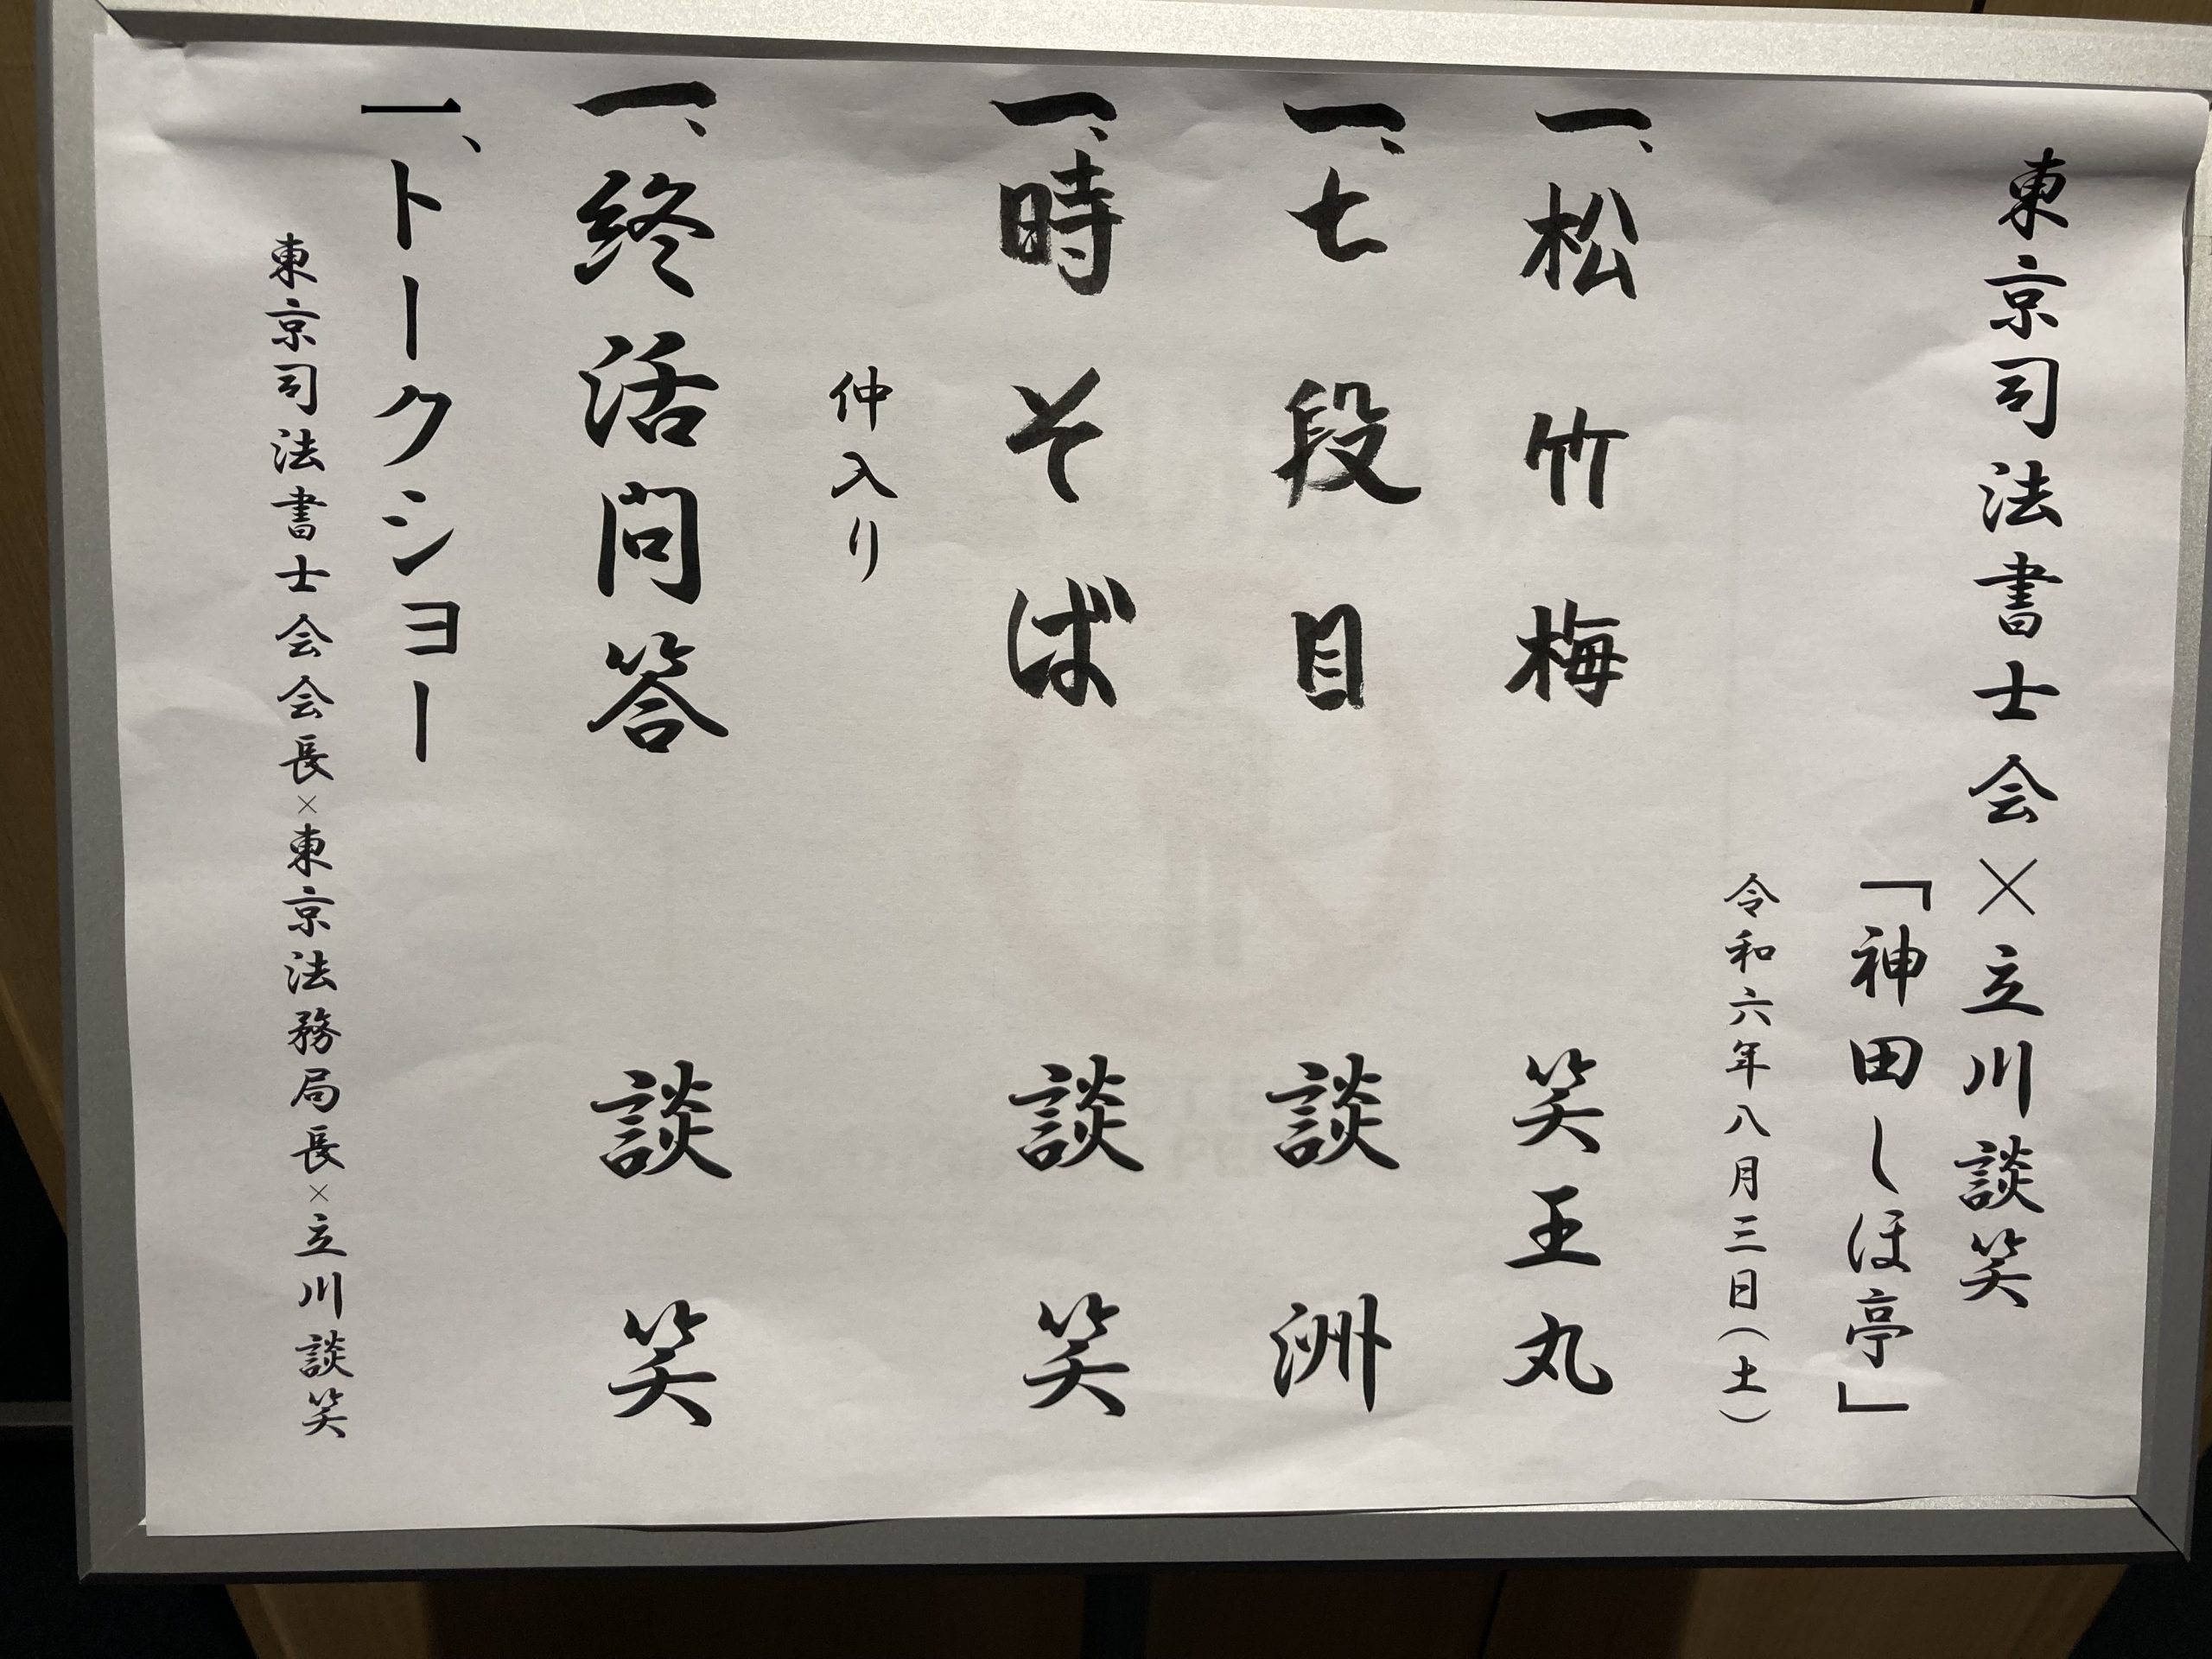 東京司法書士会×立川談笑
「神田しほ亭」
令和六年八月三日（土）
一、松竹梅 笑王丸
一、七段目 談洲
一、時そば 談笑
仲入り
一、終活問答 談笑
一、トークショー
東京司法書士会会長×東京法務局長×立川談笑